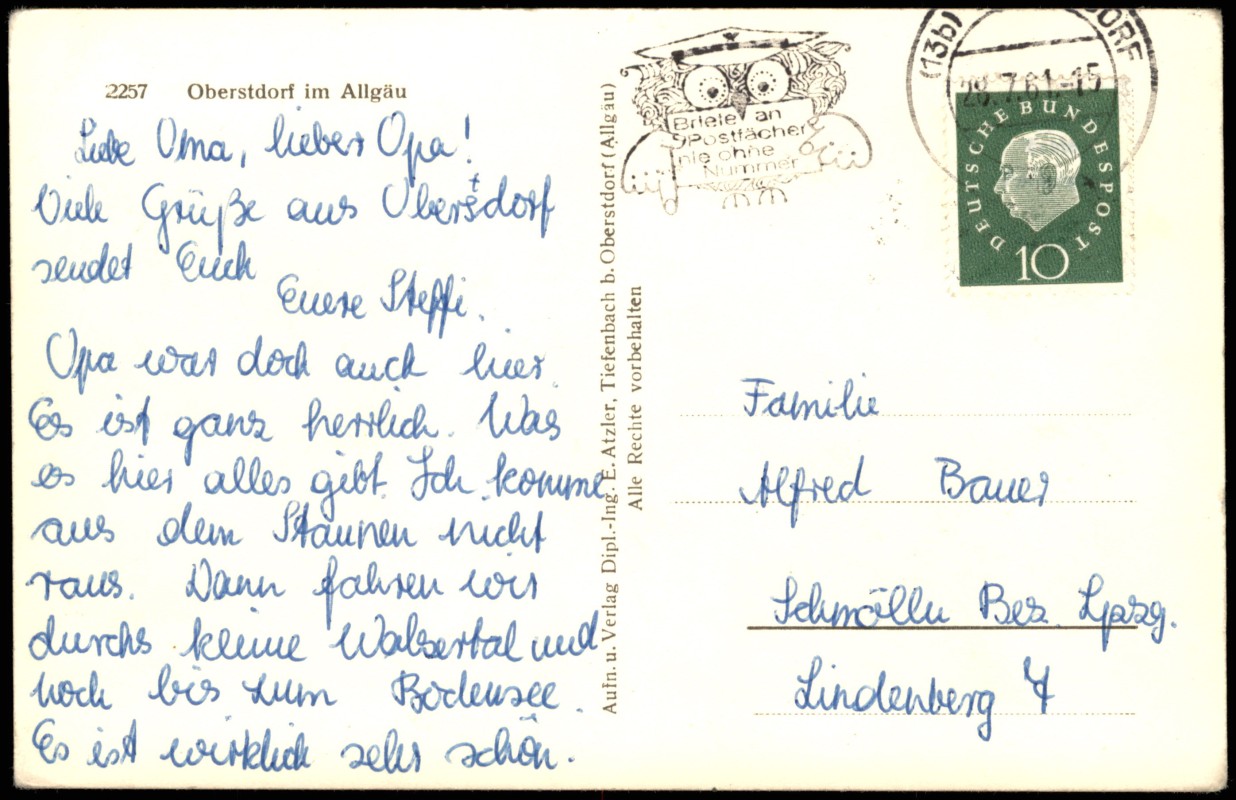 2257 Oberstdorf im Allgäu
Liebe Oma, lieber Opa!
Viele Grüße aus Oberstdorf
sendet Euch
Euere Steffi.
Opa war doch auch hier.
Es ist ganz herrlich. Was
es hier alles gibt. Ich komme
aus dem Staunen nicht
raus. Dann fahren wir
durchs kleine Walsertal und
noch bis zum Bodensee.
Es ist wirklich sehr schön.
Aufn. u. Verlag Dipl.-Ing. E. Atzler, Tiefenbach b. Oberstdorf (Allgäu)
Alle Rechte vorbehalten
Briefe an
Postfächer
nie ohne
Nummer
(13b) DORF
28.7.61-15
DEUTSCHE BUNDESPOST
10
Familie
Alfred Bauer
Schmölln Bez. Lpzg.
Lindenberg 4